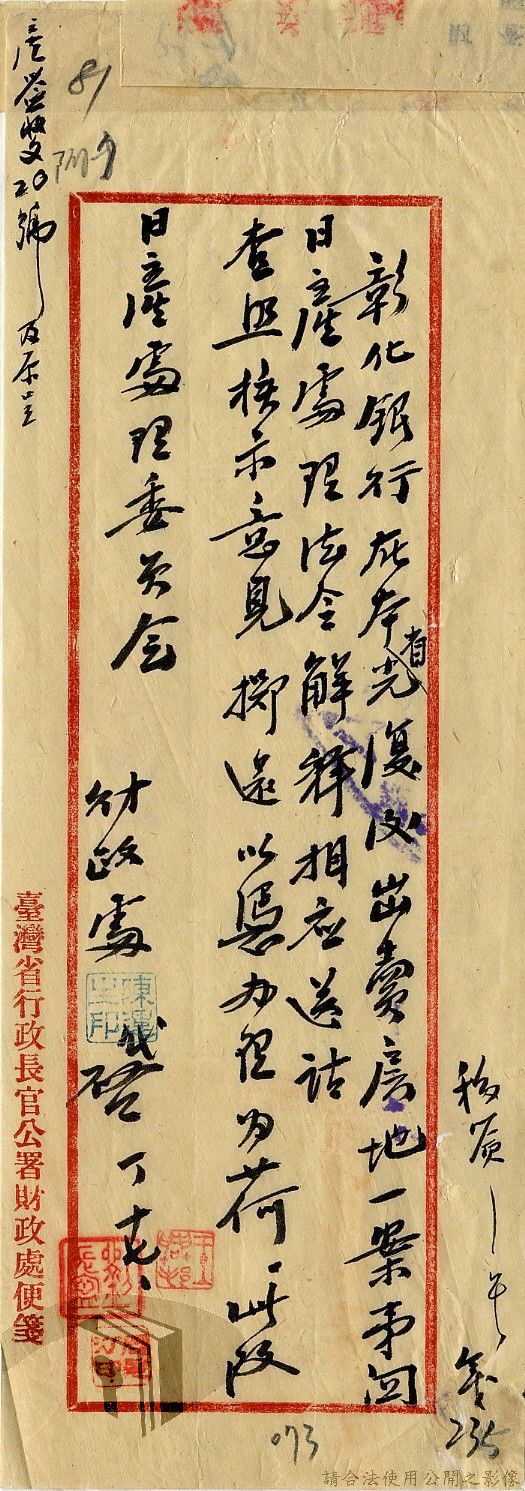 彰化銀行在本省光復後出賣房地一案事關
日產處理法令解釋相應送請
查照核示意見擲還以憑辦理為荷此致
日產處理委員會
財政處
啓
臺灣省行政長官公署財政處便箋
81
20號
235
073
請合法使用公開之影像